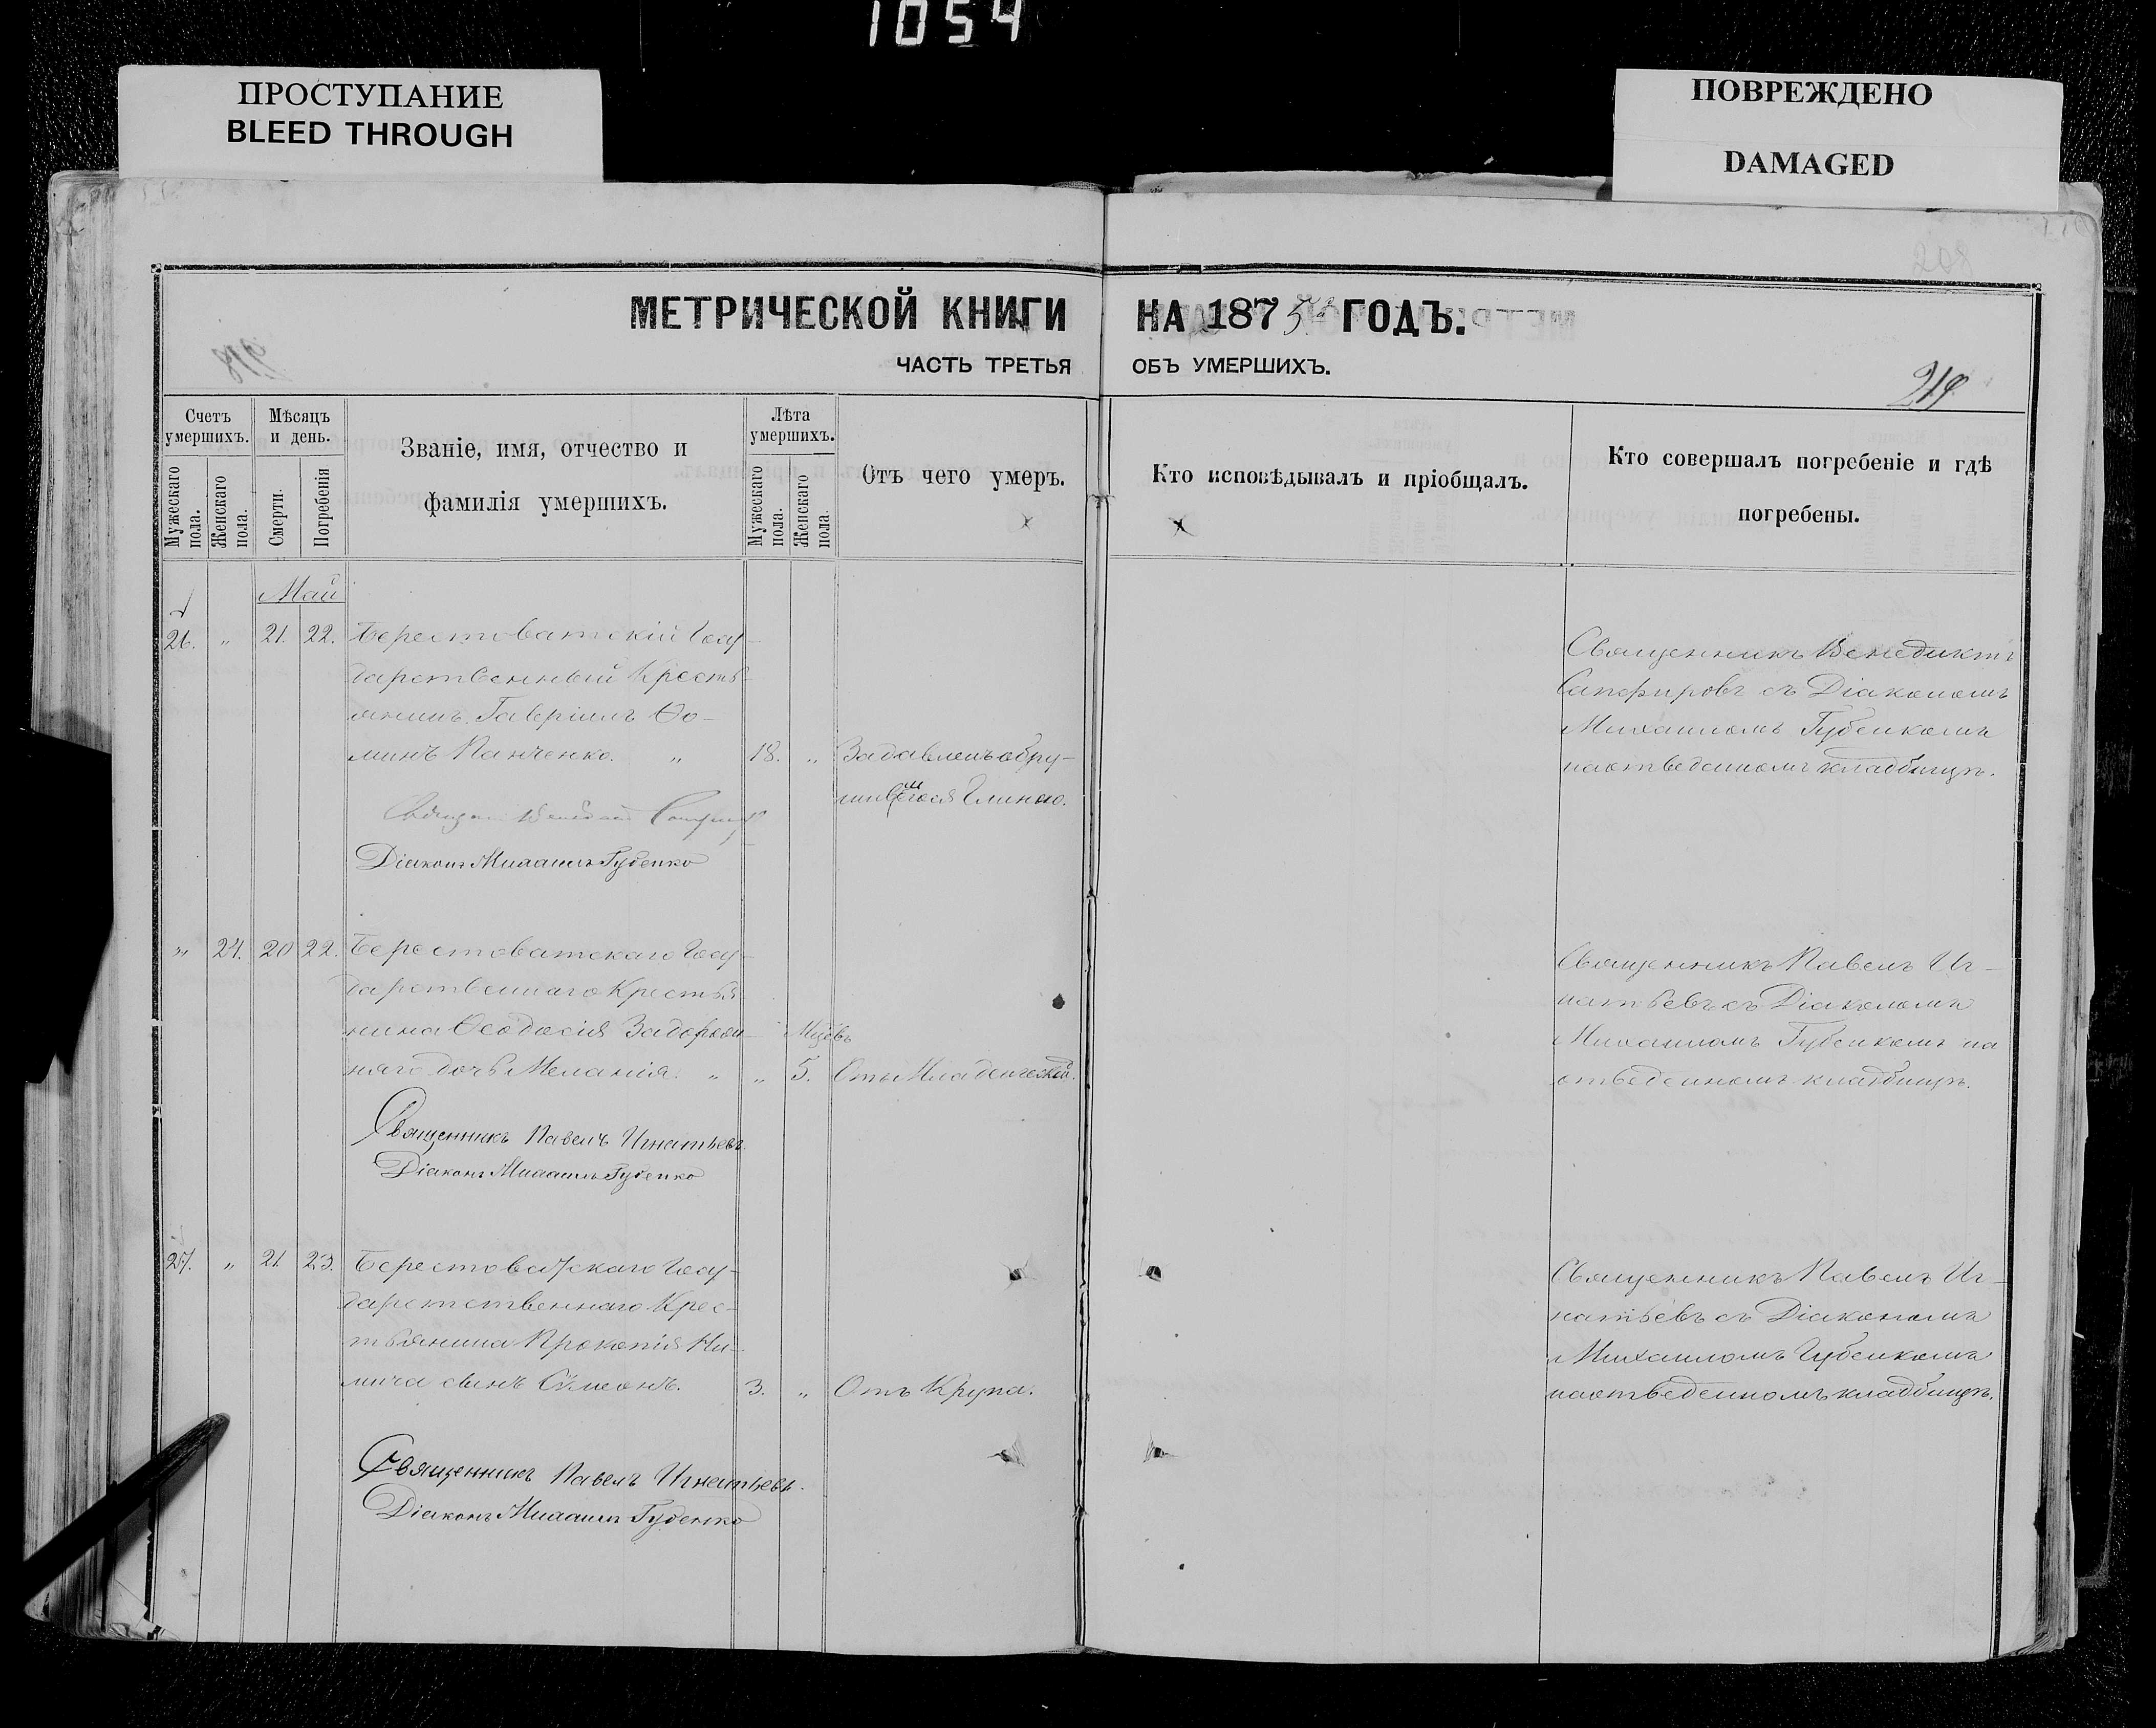 1054
ПРОСТУПАНИЕ
BLEED THROUGH
ПОВРЕЖДЕНО
DAMAGED
МЕТРИЧЕСКОЙ КНИГИ НА 1875 ГОДЪ.
ЧАСТЬ ТРЕТЬЯ ОБЪ УМЕРШИХЪ.
219
Счетъ умершихъ.
Мужескаго пола.
Женскаго пола.
Мѣсяцъ и день.
Смерти.
Погребенія
Званіе, имя, отчество и
фамилія умершихъ.
Лѣта умершихъ.
Мужескаго пола.
Женскаго пола.
Отъ чего умеръ.
Кто исповѣдывалъ и пріобщалъ.
Кто совершалъ погребеніе и гдѣ
погребены.
Май
26. " 21. 22. Берестоватскій Госу-
дарственный Кресть-
янинъ Гавріилъ Ѳо-
минъ Панченко. " 18. " Задавленъ обру-
шившеюся Глиною.
Священникъ Венедиктъ
Сапфировъ съ Діакономъ
Михаиломъ Губенкомъ
на отведенномъ кладбищѣ.
Діаконъ Михаилъ Губенко
" 24. 20 22. Берестоватскаго Госу-
дарственнаго Крестья-
нина Ѳеодосія Задорож-
няго дочь Меланія. " " Мцовъ 5. Отъ Младенческой.
Священникъ Павелъ Иг-
натьевъ съ Діакономъ
Михаиломъ Губенкомъ на
отведенномъ кладбищѣ.
Священникъ Павелъ Игнатьевъ.
Діаконъ Михаилъ Губенко
27. " 21 23. Берестоватскаго Госу-
дарственнаго Крес-
тьянина Прокопія
сынъ Сѵмеонъ. 3. " Отъ Крупа.
Священникъ Павелъ Иг-
натьевъ съ Діакономъ
Михаиломъ Губенкомъ
на отведенномъ кладбищѣ.
Священникъ Павелъ Игнатьевъ.
Діаконъ Михаилъ Губенко